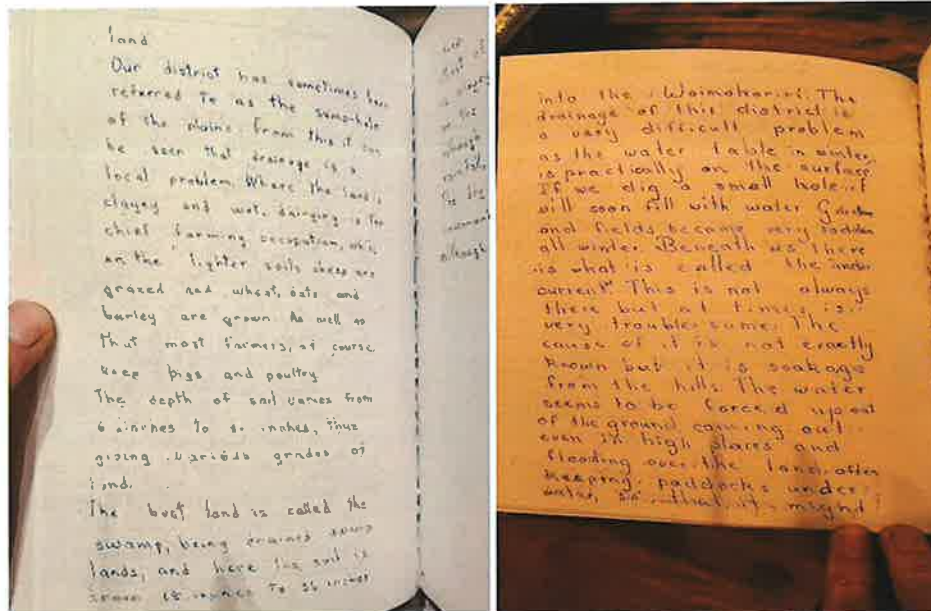 land
Our district has sometimes been
referred to as the sump-hole
of the plains. From this it can
be seen that drainage is a
local problem. Where the land is
clayey and wet, dairying is the
chief farming occupation, while
on the lighter soils sheep are
grazed and wheat, oats and
barley are grown. As well as
that most farmers, of course
keep pigs and poultry
The depth of soil varies from
6 inches to inches, thus
giving various grades of
land.
The best land is called the
swamp, being drained swamp
lands, and here the soil is
from 18 inches to 36 inches
although
into the Waimakariri. The
drainage of this district is
a very difficult problem
as the water table in winter,
is practically on the surface.
If we dig a small hole it
will soon fill with water Gardens
and fields become very sodden
all winter. Beneath us there
is what is called the under
current. This is not always
there but at times, is
very troublesome. The
cause of it is not exactly
known but it is soakage
from the hills. The water
seems to be forced up out
of the ground coming out
even in high places and
flooding over the land, often
keeping paddocks under
water, so that it might